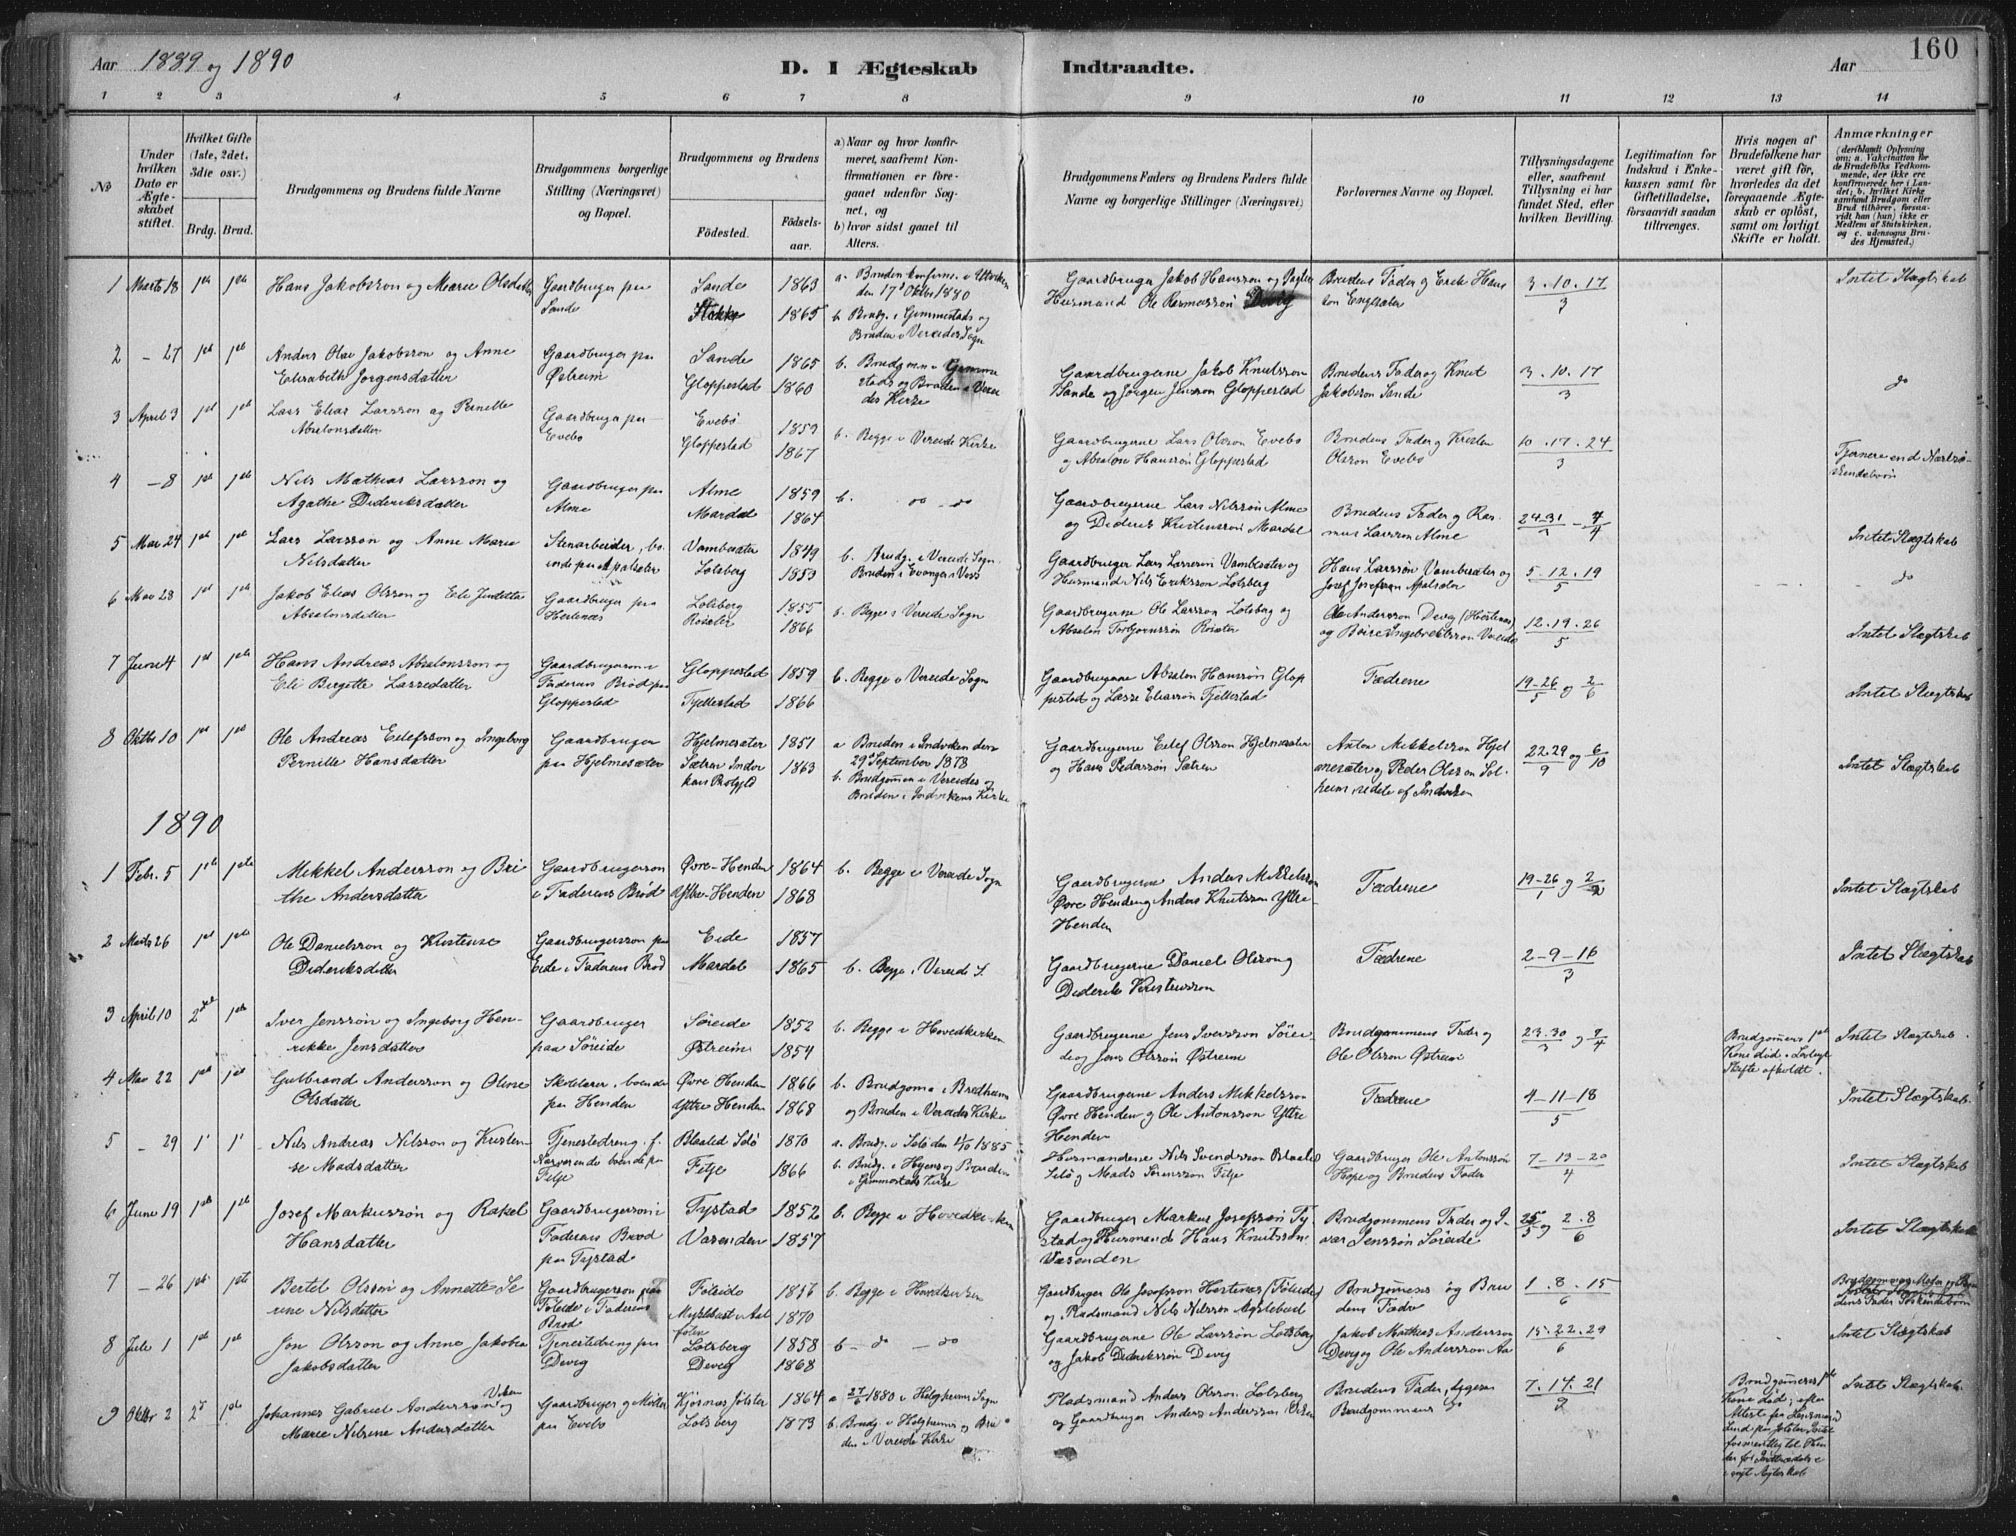 Aar 1889 og 1890
D. I Ægteskab Indtraadte.
Aar
160
1 2 3 4 5 6 7 8 9 10 11 12 13 14
No
Under hvilken Dato er Ægteskabet stiftet.
Hvilket Gifte (1ste, 2det, 3die osv.)
Brdg. Brud.
Brudgommens og Brudens fulde Navne
Brudgommens borgerlige Stilling (Næringsvei) og Bopæl.
Brudgommens og Brudens
Fødested.
Fødselsaar.
a) Naar og hvor konfirmeret, saafremt Konfirmationen er foregaaet udenfor Sognet, og
b) hvor sidst gaaet til Alters.
Brudgommens Faders og Brudens Faders fulde Navne og borgerlige Stillinger (Næringsvei)
Forlovernes Navne og Bopæl.
Tillysningsdagene eller, saafremt Tillysning ei har fundet Sted, efter hvilken Bevilling.
Legitimation for Indskud i Enkekassen samt for Giftetilladelse, forsaavidt saadan tiltrænges.
Hvis nogen af Brudefolkene har været gift før, hvorledes da det foregaaende Ægteskab er opløst, samt om lovligt Skifte er holdt.
Anmærkninger (deriblandt Oplysning om: a. Vakcination for de Brudefolks Vedkommende, der ikke ere konfirmerede her i Landet; b. hvilket Kirkesamfund Brudgom eller Brud tilhører, forsaavidt han (hun) ikke er Medlem af Statskirken, og c. udensogns Brudes Hjemsted.)
1 Marts 18 1ste 1ste Hans Jakobsson og Marie Olsdatter Gaardbruger paa Sande
Sande 1863
1865
a Bruden konfirm. i Utviken den 17de Oktbr 1880
b Brudg. i Gimmestads og Bruden i Vereides Sogn
Gaardbruger Jakob Hansson og
Husmand Ole Rasmusson Devig
Brudens Fader og Erik Hansson Engesæter
3.10.17/3
Intet Slægtskab
2 - 27 1ste 1ste Anders Olai Jakobsson og Anne Elisabeth Jørgensdatter
Gaardbruger paa Østreim
Sande 1865
Gloppestad 1860
b. Brudgom. i Gimmestads og Bruden i Vereides Kirke
Gaardbrugerne Jakob Knutsson Sande og Jørgen Jensson Gloppestad
Brudens Fader og Knut Jakobsson Sande
3.10.17/3
do
3 April 3 1ste 1ste Lars Elias Larsson og Pernille Absalonsdatter
Gaardbruger paa Evebø
Evebø 1859
Gloppestad 1867
b. Begge i Vereide Kirke
Gaardbrugerne Lars Olsson Evebø og Absalon Hansson Gloppestad
Brudens Fader og Kristen Olsson Evebø
10.17.24/3
Fjernere end Næstsøskendebørn
4 - 8 1ste 1ste Nils Mathias Larsson og Agathe Dideriksdatter
Gaardbruger paa Alme
Alme 1859
Mardal 1864
b. do - do
Gaardbrugerne Lars Nilsson Alme og Diderik Kristensson Mardal
Brudens Fader og Rasmus Larsson Alme
24-31/3 - 7/4
Intet Slægtskab
5 Mai 24 1ste 1ste Lars Larsson og Anne Marie Nilsdatter
Stenarbeider, boende paa Apalsæter
Vambesæter 1849
Lotsberg 1853
b. Brudg. i Vereide Sogn
Bruden i Evanger, Voss
Gaardbruger Lars Larsson Vambesæter og Husmand Nils Eriksson Lotsberg
Hans Larsson Vambesæter og Josef Josefson Apalsæter
5.12.19/5
do
6 Mai 28 1ste 1ste Jakob Elias Olsson og Eli Absalonsdatter
Gaardbruger paa Hestenes
Lotsberg 1855
Rosæter 1866
b. Begge i Vereide Sogn
Gaardbrugerne Ole Larsson Lotsberg og Absalon Torbjørnsson Rosæter
Ole Andersson Devig (Hestenes) og Ingebrektsson Vereide
12.19.26/5
Intet Slægtskab
7 Juni 4 1ste 1ste Hans Andreas Absalonsson og Eli Birgette Lassedatter
Gaardbrugerson i Faderens Brød paa Gloppestad
Gloppestad 1859
Fjellestad 1866
b. Begge i Vereide Sogn
Gaardbrugerne Absalon Hansson Gloppestad og Lasse Eliasson Fjellestad
Fædrene
19-26/5 og 2/6
Intet Slægtskab
8 Oktbr 10 1ste 1ste Ole Andreas Eilefsson og Ingeborg Pernille Hansdatter
Gaardbruger paa Hjelmesæter
Hjelmesæter 1851
Sætren 1863
a Bruden i Indviken den 29 September 1878
b. Brudgommen i Vereides og Bruden i Indvikens Kirke
Gaardbrugerne Eilef Olsson Hjelmesæter og Hans Pedersson Sætren
Anton Mikkelsson Hjelmesæter og Peder Olsson Solheim, af Indviken
22.29/9 og 6/10
Intet Slægtskab
1890
1 Febr. 5 1ste 1ste Mikkel Andersson og Brithe Andersdatter
Gaardbrugerson i Faderens Brød
Øvre-Henden 1864
Ytre-Henden 1868
b. Begge i Vereide Sogn
Gaardbrugerne Anders Mikkelsson Øvre Henden og Anders Knutsson Yttre Henden
Fædrene
19-26/1 og 2/2
Intet Slægtskab
2 Marts 26 1ste 1ste Ole Danielsson og Kristense Dideriksdatter
Gaardbrugersson paa Eide i Faderens Brød
Eide 1857
Mardal 1865
b. Begge i Vereide S.
Gaardbrugerne Daniel Olsson og Diderik Kristensson
Fædrene
2-9-16/3
Intet Slægtskab
3 April 10 2det 1ste Iver Jensson og Ingeborg Henrikke Jensdatter
Gaardbruger paa Søreide
Søreide 1852
Østreim 1854
b. Begge i Hovedkirken
Gaardbrugerne Jens Iversson Søreide og Jens Olsson Østreim
Brudgommens Fader og Ole Olsson Østreim
23.30/3 og 7/4
Brudgommens 1ste Kone død. Lovligt Skifte afholdt.
Intet Slægtskab.
4 Mai 22 1ste 1ste Gulbrand Andersson og Oline Olsdatter
Skolelærer, boende paa Henden
Øvre Henden 1866
Yttre Henden 1868
b. Brudgom. i Bredheim og Bruden i Vereide Kirke
Gaardbrugerne Anders Mikkelsson Øvre Henden og Ole Antonsson Yttre Henden
Fædrene
4-11-18/5
Intet Slægtskab
5 - 29 1 1 Nils Andreas Nilsson og Kristense Madsdatter
Tjenestedreng f. Nærværende boende paa Fitje
Selø 1870
Fitje 1866
a. Brudg. i Selø den 1885
b. Brudg. i Hyens og Bruden i Gimmestads Kirke
Husmændene Nils Svendsson Selø og Mads Sørensson Fitje
Gaardbruger Ole Antonsson Hope og Brudens Fader
7-13-20/4
Intet Slægtskab
6 Juni 19 1ste 1ste Josef Markusson og Rakel Hansdatter
Gaardbrugerson i Faderens Brød paa Tystad
Tystad 1852
Vasenden 1857
b. Begge i Hovedkirken
Gaardbruger Markus Josefsson Tystad og Husmand Hans Knutsson Vasenden
Brudgommens Fader og Ivar Jensson Søreide
25/5 og 2.8/6
Intet Slægtskab
7 - 26 1ste 1ste Bertel Olsson og Annette Serine Nilsdatter
Gaardbrugerson paa Føleide i Faderens Brød
Føleide 1856
1870
b. Begge i Hovedkirken
Gaardbruger Ole Josefsson Hestenes (Føleide) og Pladsmand Nils Nilsson
Brudgommens og Brudens Fædre
1.8.15/6
8 Juli 1 1ste 1ste Jon Olsson og Anne Jakobea Jakobsdatter
Tjenestedreng paa Devig
Lotsberg 1858
Devig 1868
b - do - do
Gaardbrugerne Ole Larsson Lotsberg og Jakob Dideriksson Devig
Jakob Mathias Andersson Devig og Ole Andersson
15.22.29/6
Intet Slægtskab
9 Oktbr 2 2det 1ste Johannes Gabriel Andersson og Marie Nilsine Andersdatter
Gaardbruger paa Evebø
Kjøsnes Jølster 1864
Lotsberg 1873
a 27/6 1880 i Helgheims Sogn
b. Brudg. i Helgheims og Bruden i Vereide Kirke
Pladsmand Anders Olsson Lotsberg og Gaardbruger Anders Andersson
Brudens Fader, Brudgommens do
7.14.21
Brudgommens 1ste Kone død; efter Attest fra
Intet Slægtskab.